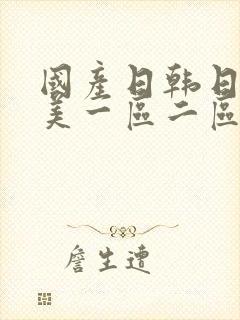 國產日韩日
美一區二區
詹生遭